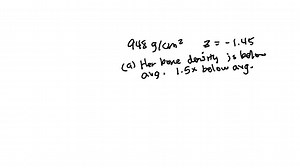 948 g/cm² z = -1.45
(a) Her bone density is below
avg. 1.5x below avg.